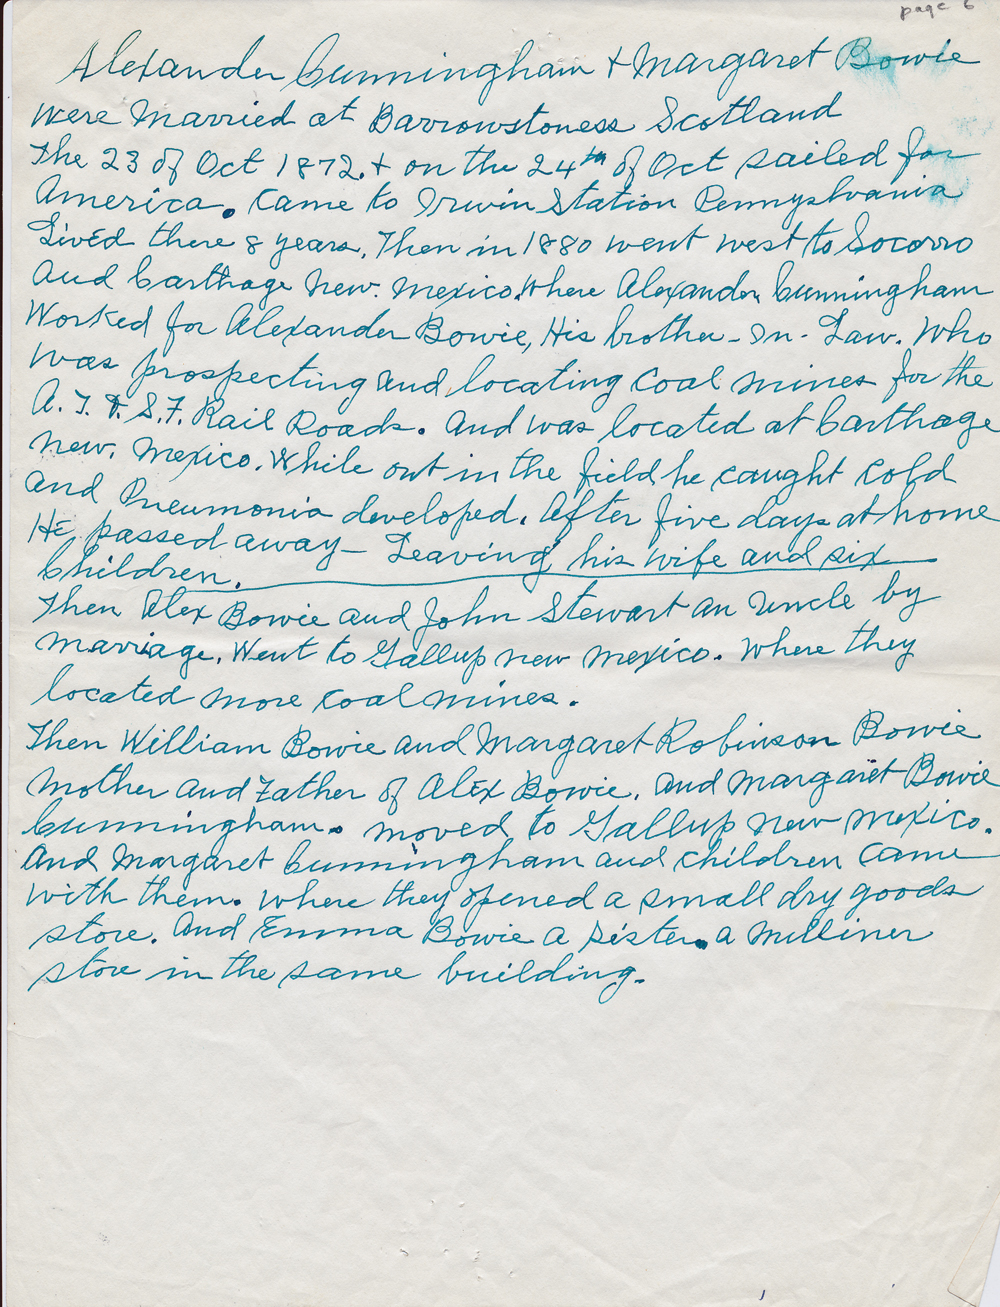 page 6
Alexander Cunningham + Margaret Bowie
were Married at Barrowstoness Scotland
The 23 of Oct 1872. + on the 24th of Oct sailed for
America. Came to Irwin Station Pennysylvania
Lived there 8 years. Then in 1880 went west to Socorro
and Carthage New. Mexico. Where Alexander Cunningham
Worked for Alexander Bowie, His brother-In-Law. Who
was prospecting and locating coal mines for the
A. T. & S.F. Rail Roads. And was located at Carthage
New. Mexico. While out in the field he caught cold
and Pneumonia developed. After five days at home
He passed away - Leaving his wife and six
Children.
Then Alex Bowie and John Stewart an Uncle by
marriage. Went to Gallup New Mexico. Where they
located more coal mines.
Then William Bowie and Margaret Robinson Bowie
Mother and Father of Alex Bowie. and Margaret Bowie
Cunningham. moved to Gallup New Mexico.
And Margaret Cunningham and children came
with them. where they opened a small dry goods
store. And Emma Bowie a sister. a Milliner
store in the same building.